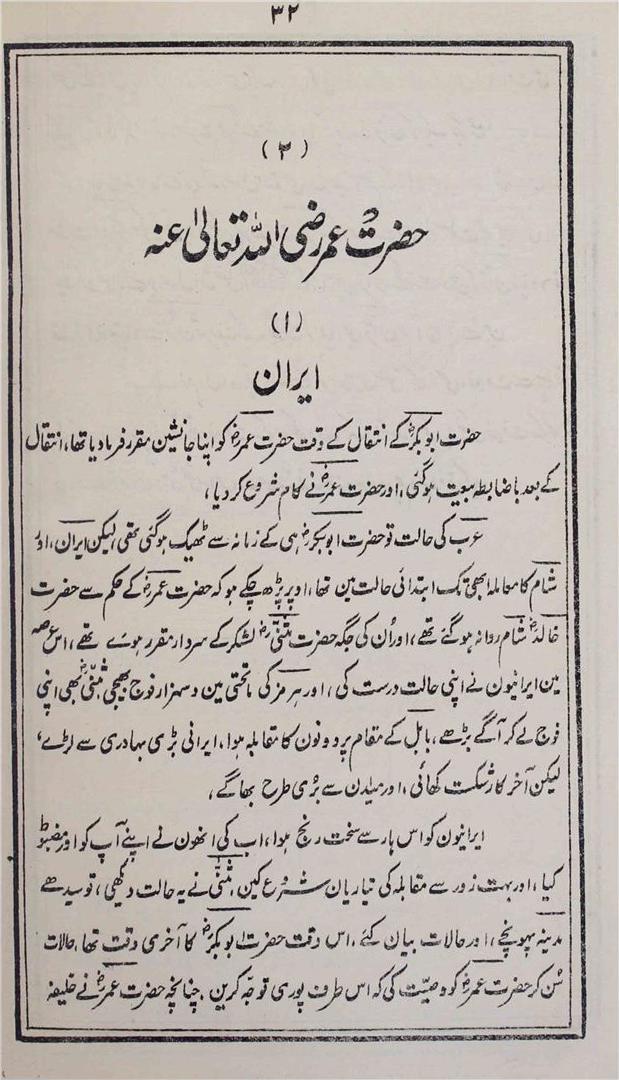 ۳۲
(۲)
حضرت عمر رضی اللہ تعالیٰ عنہ
(۱)
ایران
حضرت ابوبکرؓ کے انتقال کے وقت حضرت عمرؓ کو اپنا جانشین مقرر فرما دیا تھا، انتقال
کے بعد باضابطہ بیعت ہوگئی، اور حضرت عمرؓ نے کام شروع کر دیا،
عرب کی حالت تو حضرت ابوبکرؓ ہی کے زمانہ سے ٹھیک ہوگئی تھی لیکن ایران، اور
شام کا معاملہ ابھی تک ابتدائی حالت مین تھا، اوپر پڑھ چکے ہو کہ حضرت عمرؓ کے حکم سے حضرت
خالدؓ شام روانہ ہو گئے تھے، اور اُن کی جگہ حضرت مثنیٰؓ لشکر کے سردار مقرر ہوے تھے، اس عرصہ
مین ایرانیون نے اپنی حالت درست کی، اور ہرمز کی ماتحتی مین دس ہزار فوج بھیجی مثنیٰؓ بھی اپنی
فوج لے کر آگے بڑھے، بابل کے مقام پر دونون کا مقابلہ ہوا، ایرانی بڑی بہادری سے لڑے،
لیکن آخر کار شکست کھائی، اور میدن سے بُری طرح بھاگے،
ایرانیون کو اس ہار سے سخت رنج ہوا، اب کی انھون نے اپنے آپ کو اور مضبوط
کیا، اور بہت زور سے مقابلہ کی تیاریان شروع کین، مثنیٰؓ نے یہ حالت دیکھی، تو سیدھے
مدینہ پہونچے، اور حالات بیان کئے، اس وقت حضرت ابوبکرؓ کا آخری وقت تھا، حالات
سُن کر حضرت عمرؓ کو وصیّت کی کہ اس طرف پوری توجہ کرین، چنانچہ حضرت عمرؓ نے خلیفہ